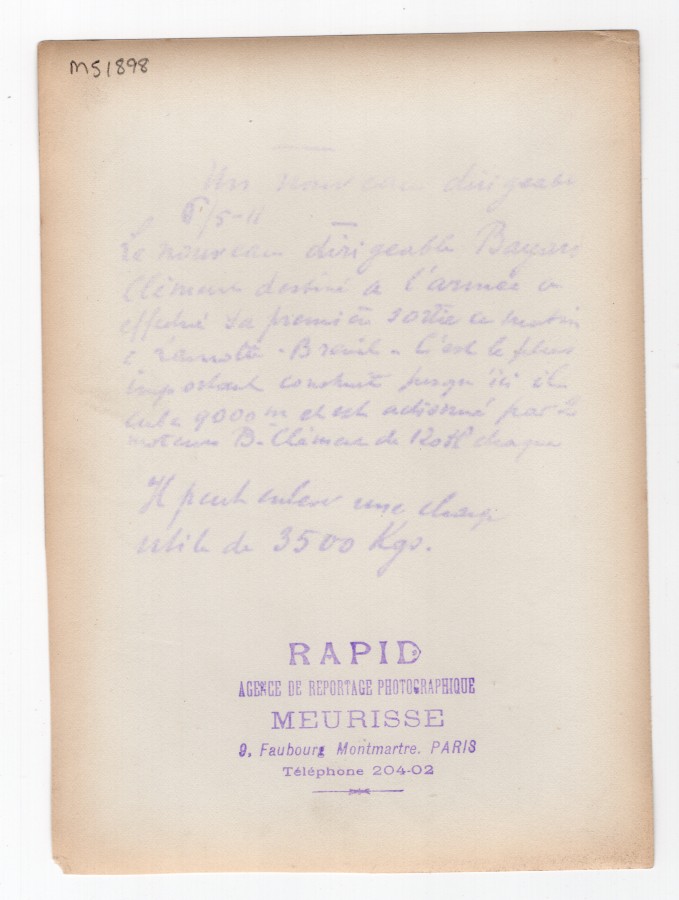 MS1898
Un nouveau dirigeable
/5-11
Le nouveau dirigeable Bayard
Clément destiné a l'armée a
effectué sa première sortie ce matin
a Lamotte-Breuil - C'est le plus
important construit jusqu'ici il
cube 9000 m et est actionné par 2
moteurs B-Clément de 120 H chaque
Il peut enlever une charge
utile de 3500 Kgs.
RAPID
AGENCE DE REPORTAGE PHOTOGRAPHIQUE
MEURISSE
9, Faubourg Montmartre. PARIS
Téléphone 204-02